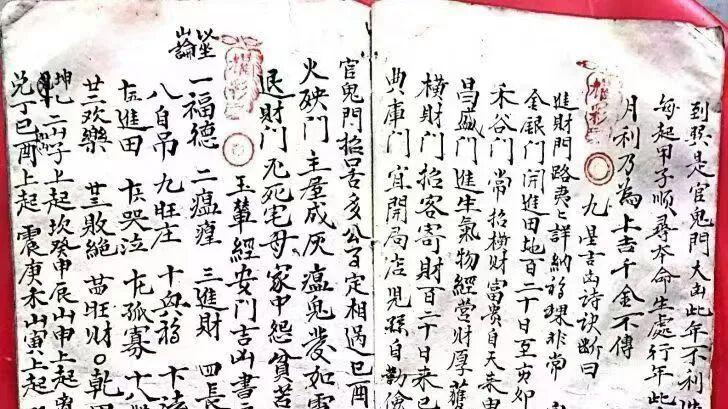 到照是官鬼門大凶此年不利
每起甲子順尋本命生處行年此
月利乃為上吉千金不傳
九星吉凶詩訣斷曰
進財門路貴詳納福祿非常
金銀門開進田地百二十日至寅卯
禾谷門常招橫財富貴自天來
昌盛門進生氣物經營財厚
橫財門招客寄財百二十日來巳
典庫門宜開局店兒孫自勤儉
官鬼門招口舌多公百定相遇巳酉
火殃門主屋成灰瘟鬼愛如
退財門死宅母家中怨貧苦
玉輦經安門吉凶書
坐論
一福德 二瘟瘟 三進財 四長
八自吊 九旺庄 十興福 十法
十五進田 十六哭泣 十七孤寡 十八
廿二歡樂 廿三敗絕 廿四旺財〇乾
坤乙二山子上起坎癸申辰山申上起
兌丁巳酉上起震庚未山寅上起